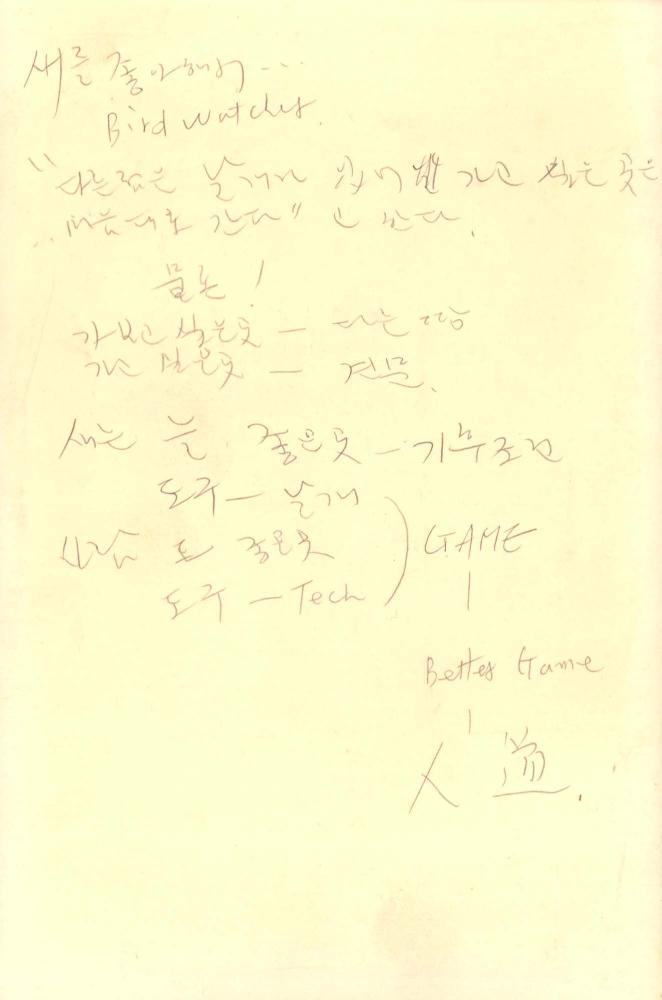 새를 좋아해서 ...
Bird Watcher.
날개가 가고 싶은 곳은
마음대로 간다" 고 쓴다.
물론!
가보고 싶은곳 — 다른 땅
가고 싶은곳 —
새는 늘 좋은곳 — 기후조건
도구 — 날개
사람 도 좋은곳 GAME
도구 — Tech
Better Game
人 道.